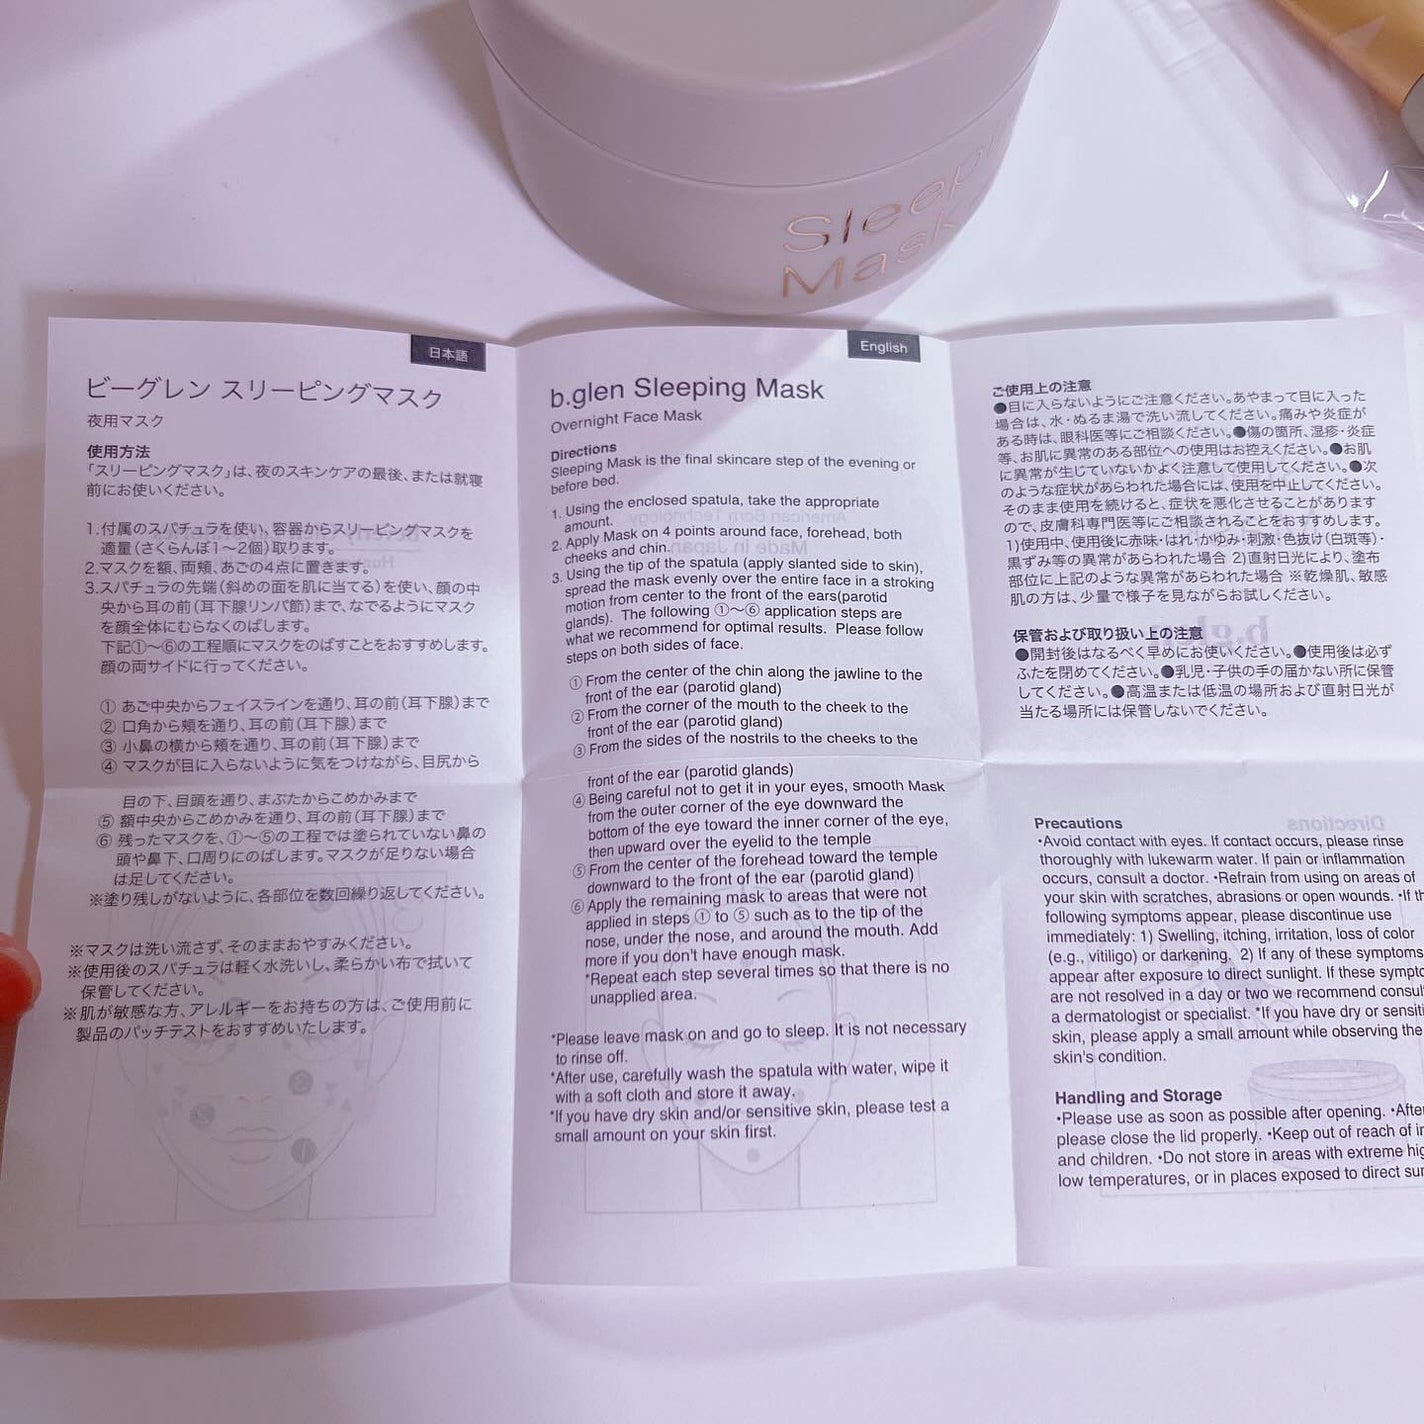 Sleepi
Mask
日本語
ビーグレン スリーピングマスク
夜用マスク
使用方法
「スリーピングマスク」は、夜のスキンケアの最後、または就寝
前にお使いください。
1.付属のスパチュラを使い、容器からスリーピングマスクを
適量(さくらんぼ1～2個)取ります。
2.マスクを額、両頬、あごの4点に置きます。
3.スパチュラの先端(斜めの面を肌に当てる)を使い、顔の中
央から耳の前(耳下腺リンパ節)まで、なでるようにマスク
を顔全体にむらなくのばします。
下記①～⑥の工程順にマスクをのばすことをおすすめします。
顔の両サイドに行ってください。
① あご中央からフェイスラインを通り、耳の前(耳下腺)まで
② 口角から頬を通り、耳の前(耳下腺)まで
③ 小鼻の横から頬を通り、耳の前(耳下腺)まで
④ マスクが目に入らないように気をつけながら、目尻から
目の下、目頭を通り、まぶたからこめかみまで
⑤ 額中央からこめかみを通り、耳の前(耳下腺)まで
⑥ 残ったマスクを、①～⑤の工程では塗られていない鼻の
頭や鼻下、口周りにのばします。マスクが足りない場合
は足してください。
※塗り残しがないように、各部位を数回繰り返してください。
※マスクは洗い流さず、そのままおやすみください。
※使用後のスパチュラは軽く水洗いし、柔らかい布で拭いて
保管してください。
※肌が敏感な方、アレルギーをお持ちの方は、ご使用前に
製品のパッチテストをおすすめいたします。
English
b.glen Sleeping Mask
Overnight Face Mask
Directions
Sleeping Mask is the final skincare step of the evening or
before bed.
1. Using the enclosed spatula, take the appropriate
amount.
2. Apply Mask on 4 points around face, forehead, both
cheeks and chin.
3. Using the tip of the spatula (apply slanted side to skin),
spread the mask evenly over the entire face in a stroking
motion from center to the front of the ears(parotid
glands). The following ①～⑥ application steps are
what we recommend for optimal results. Please follow
steps on both sides of face.
① From the center of the chin along the jawline to the
front of the ear (parotid gland)
② From the corner of the mouth to the cheek to the
front of the ear (parotid gland)
③ From the sides of the nostrils to the cheeks to the
front of the ear (parotid glands)
④ Being careful not to get it in your eyes, smooth Mask
from the outer corner of the eye downward the
bottom of the eye toward the inner corner of the eye,
then upward over the eyelid to the temple
⑤ From the center of the forehead toward the temple
downward to the front of the ear (parotid gland)
⑥ Apply the remaining mask to areas that were not
applied in steps ① to ⑤ such as to the tip of the
nose, under the nose, and around the mouth. Add
more if you don't have enough mask.
*Repeat each step several times so that there is no
unapplied area.
*Please leave mask on and go to sleep. It is not necessary
to rinse off.
*After use, carefully wash the spatula with water, wipe it
with a soft cloth and store it away.
*If you have dry skin and/or sensitive skin, please test a
small amount on your skin first.
ご使用上の注意
●目に入らないようにご注意ください。あやまって目に入った
場合は、水・ぬるま湯で洗い流してください。痛みや炎症が
ある時は、眼科医等にご相談ください。●傷の箇所、湿疹・炎症
等、お肌に異常のある部位への使用はお控えください。●お肌
に異常が生じていないかよく注意して使用してください。●次
のような症状があらわれた場合には、使用を中止してください。
そのまま使用を続けると、症状を悪化させることがあります
ので、皮膚科専門医等にご相談されることをおすすめします。
1)使用中、使用後に赤味・はれ・かゆみ・刺激・色抜け(白斑等)・
黒ずみ等の異常があらわれた場合 2)直射日光により、塗布
部位に上記のような異常があらわれた場合 ※乾燥肌、敏感
肌の方は、少量で様子を見ながらお試しください。
保管および取り扱い上の注意
●開封後はなるべく早めにお使いください。●使用後は必ず
ふたを閉めてください。●乳児・子供の手の届かない所に保管
してください。●高温または低温の場所および直射日光が
当たる場所には保管しないでください。
Precautions
•Avoid contact with eyes. If contact occurs, please rinse
thoroughly with lukewarm water. If pain or inflammation
occurs, consult a doctor. •Refrain from using on areas of
your skin with scratches, abrasions or open wounds. •If th
following symptoms appear, please discontinue use
immediately: 1) Swelling, itching, irritation, loss of color
(e.g., vitiligo) or darkening. 2) If any of these symptoms
appear after exposure to direct sunlight. If these sympto
are not resolved in a day or two we recommend consul
a dermatologist or specialist. *If you have dry or sensiti
skin, please apply a small amount while observing the
skin's condition.
Handling and Storage
•Please use as soon as possible after opening. •After
please close the lid properly. •Keep out of reach of in
and children. •Do not store in areas with extreme hig
low temperatures, or in places exposed to direct sun